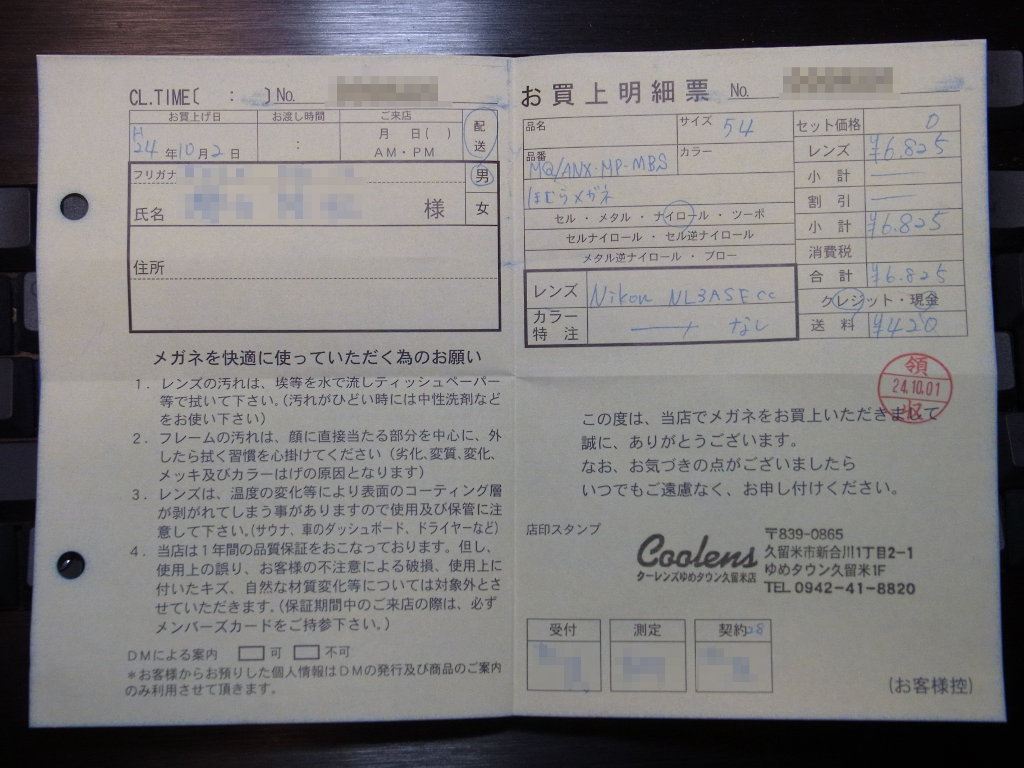 CL.TIME〔　：　〕No.
お買上げ日　お渡し時間　ご来店　配送
H24年10月2日　：　月　日(　)　AM・PM
フリガナ　男
氏名　様　女
住所
メガネを快適に使っていただく為のお願い
1．レンズの汚れは、埃等を水で流しティッシュペーパー
等で拭いて下さい。(汚れがひどい時には中性洗剤など
をお使い下さい)
2．フレームの汚れは、顔に直接当たる部分を中心に、外
したら拭く習慣を心掛けてください（劣化、変質、変化、
メッキ及びカラーはげの原因となります）
3．レンズは、温度の変化等により表面のコーティング層
が剥がれてしまう事がありますので使用及び保管に注
意して下さい。(サウナ、車のダッシュボード、ドライヤーなど)
4．当店は１年間の品質保証をおこなっております。但し、
使用上の誤り、お客様の不注意による破損、使用上に
付いたキズ、自然な材質変化等については対象外とさ
せていただきます。(保証期間中のご来店の際は、必ず
メンバーズカードをご持参下さい。)
DMによる案内　可　不可
＊お客様からお預りした個人情報はDMの発行及び商品のご案内
のみ利用させて頂きます。
お買上明細票　No.
品名　サイズ　54
品番　カラー
MQ/ANX・MP-MBS
ほむらメガネ
セル・メタル・ナイロール・ツーポ
セルナイロール・セル逆ナイロール
メタル逆ナイロール・ブロー
レンズ　Nikon NL3ASFcc
カラー特注　なし
セット価格　0
レンズ　¥6.825
小計
割引
小計　¥6.825
消費税
合計　¥6.825
クレジット・現金
送料　¥420
領収
24.10.01
この度は、当店でメガネをお買上いただきまして
誠に、ありがとうございます。
なお、お気づきの点がございましたら
いつでもご遠慮なく、お申し付けください。
店印スタンプ
Coolens
クーレンズゆめタウン久留米店
〒839-0865
久留米市新合川1丁目2-1
ゆめタウン久留米1F
TEL 0942-41-8820
受付　測定　契約28
(お客様控)